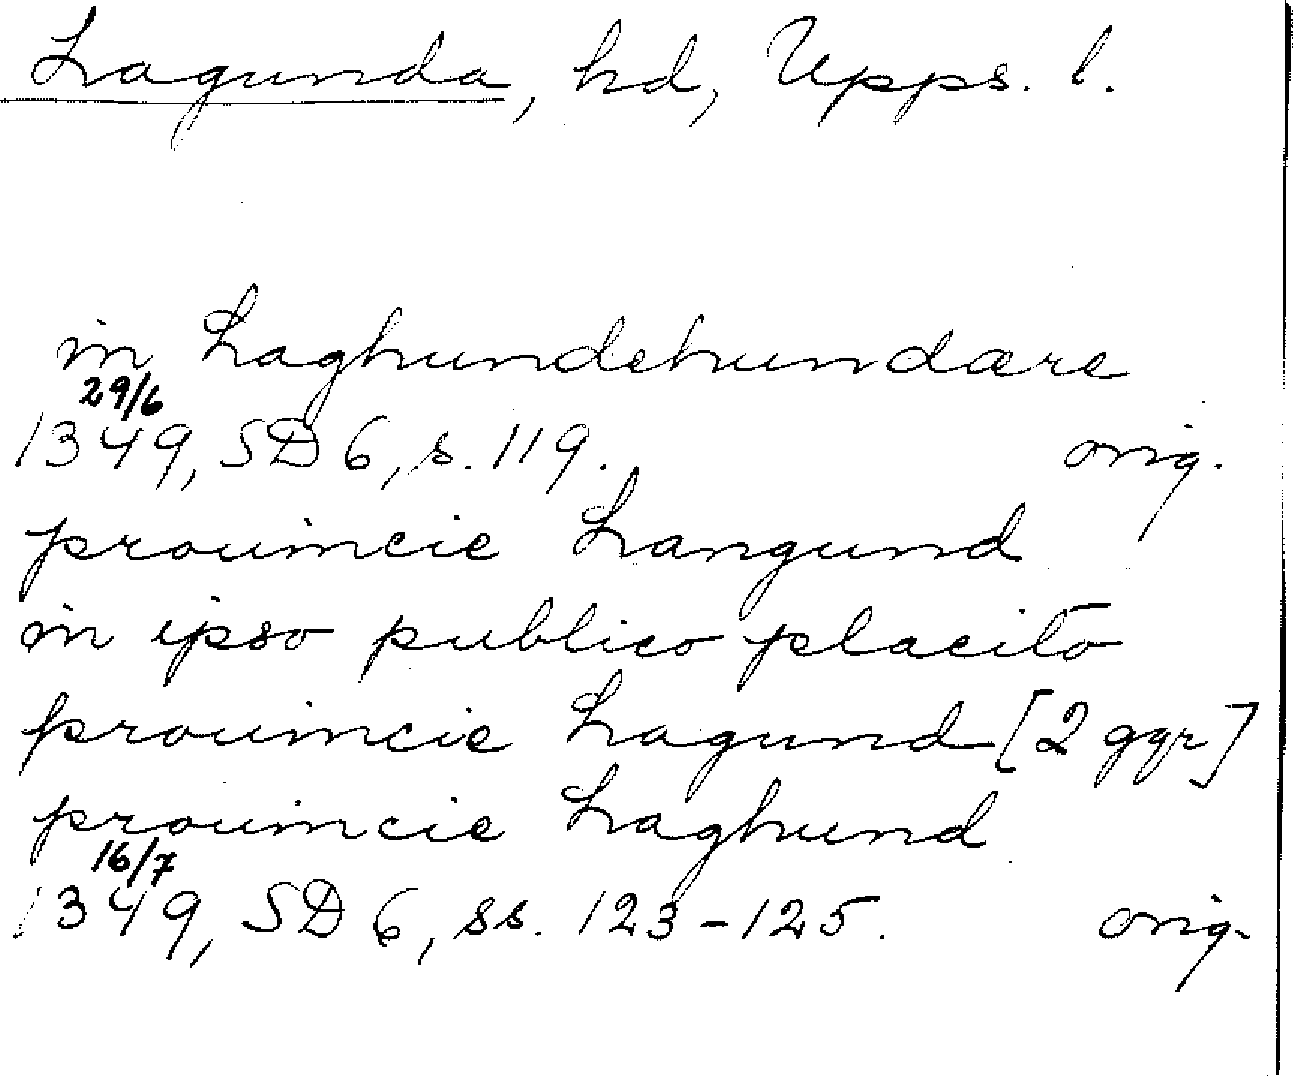 Lagunda, hd, Upps. l.
in Laghundehundære
29/6
1349, SD 6, s. 119. orig.
prouincie Langund
in ipso publico placito
prouincie Lagund [2 ggr]
prouincie Laghund
16/7
1349, SD 6, ss. 123-125. orig.